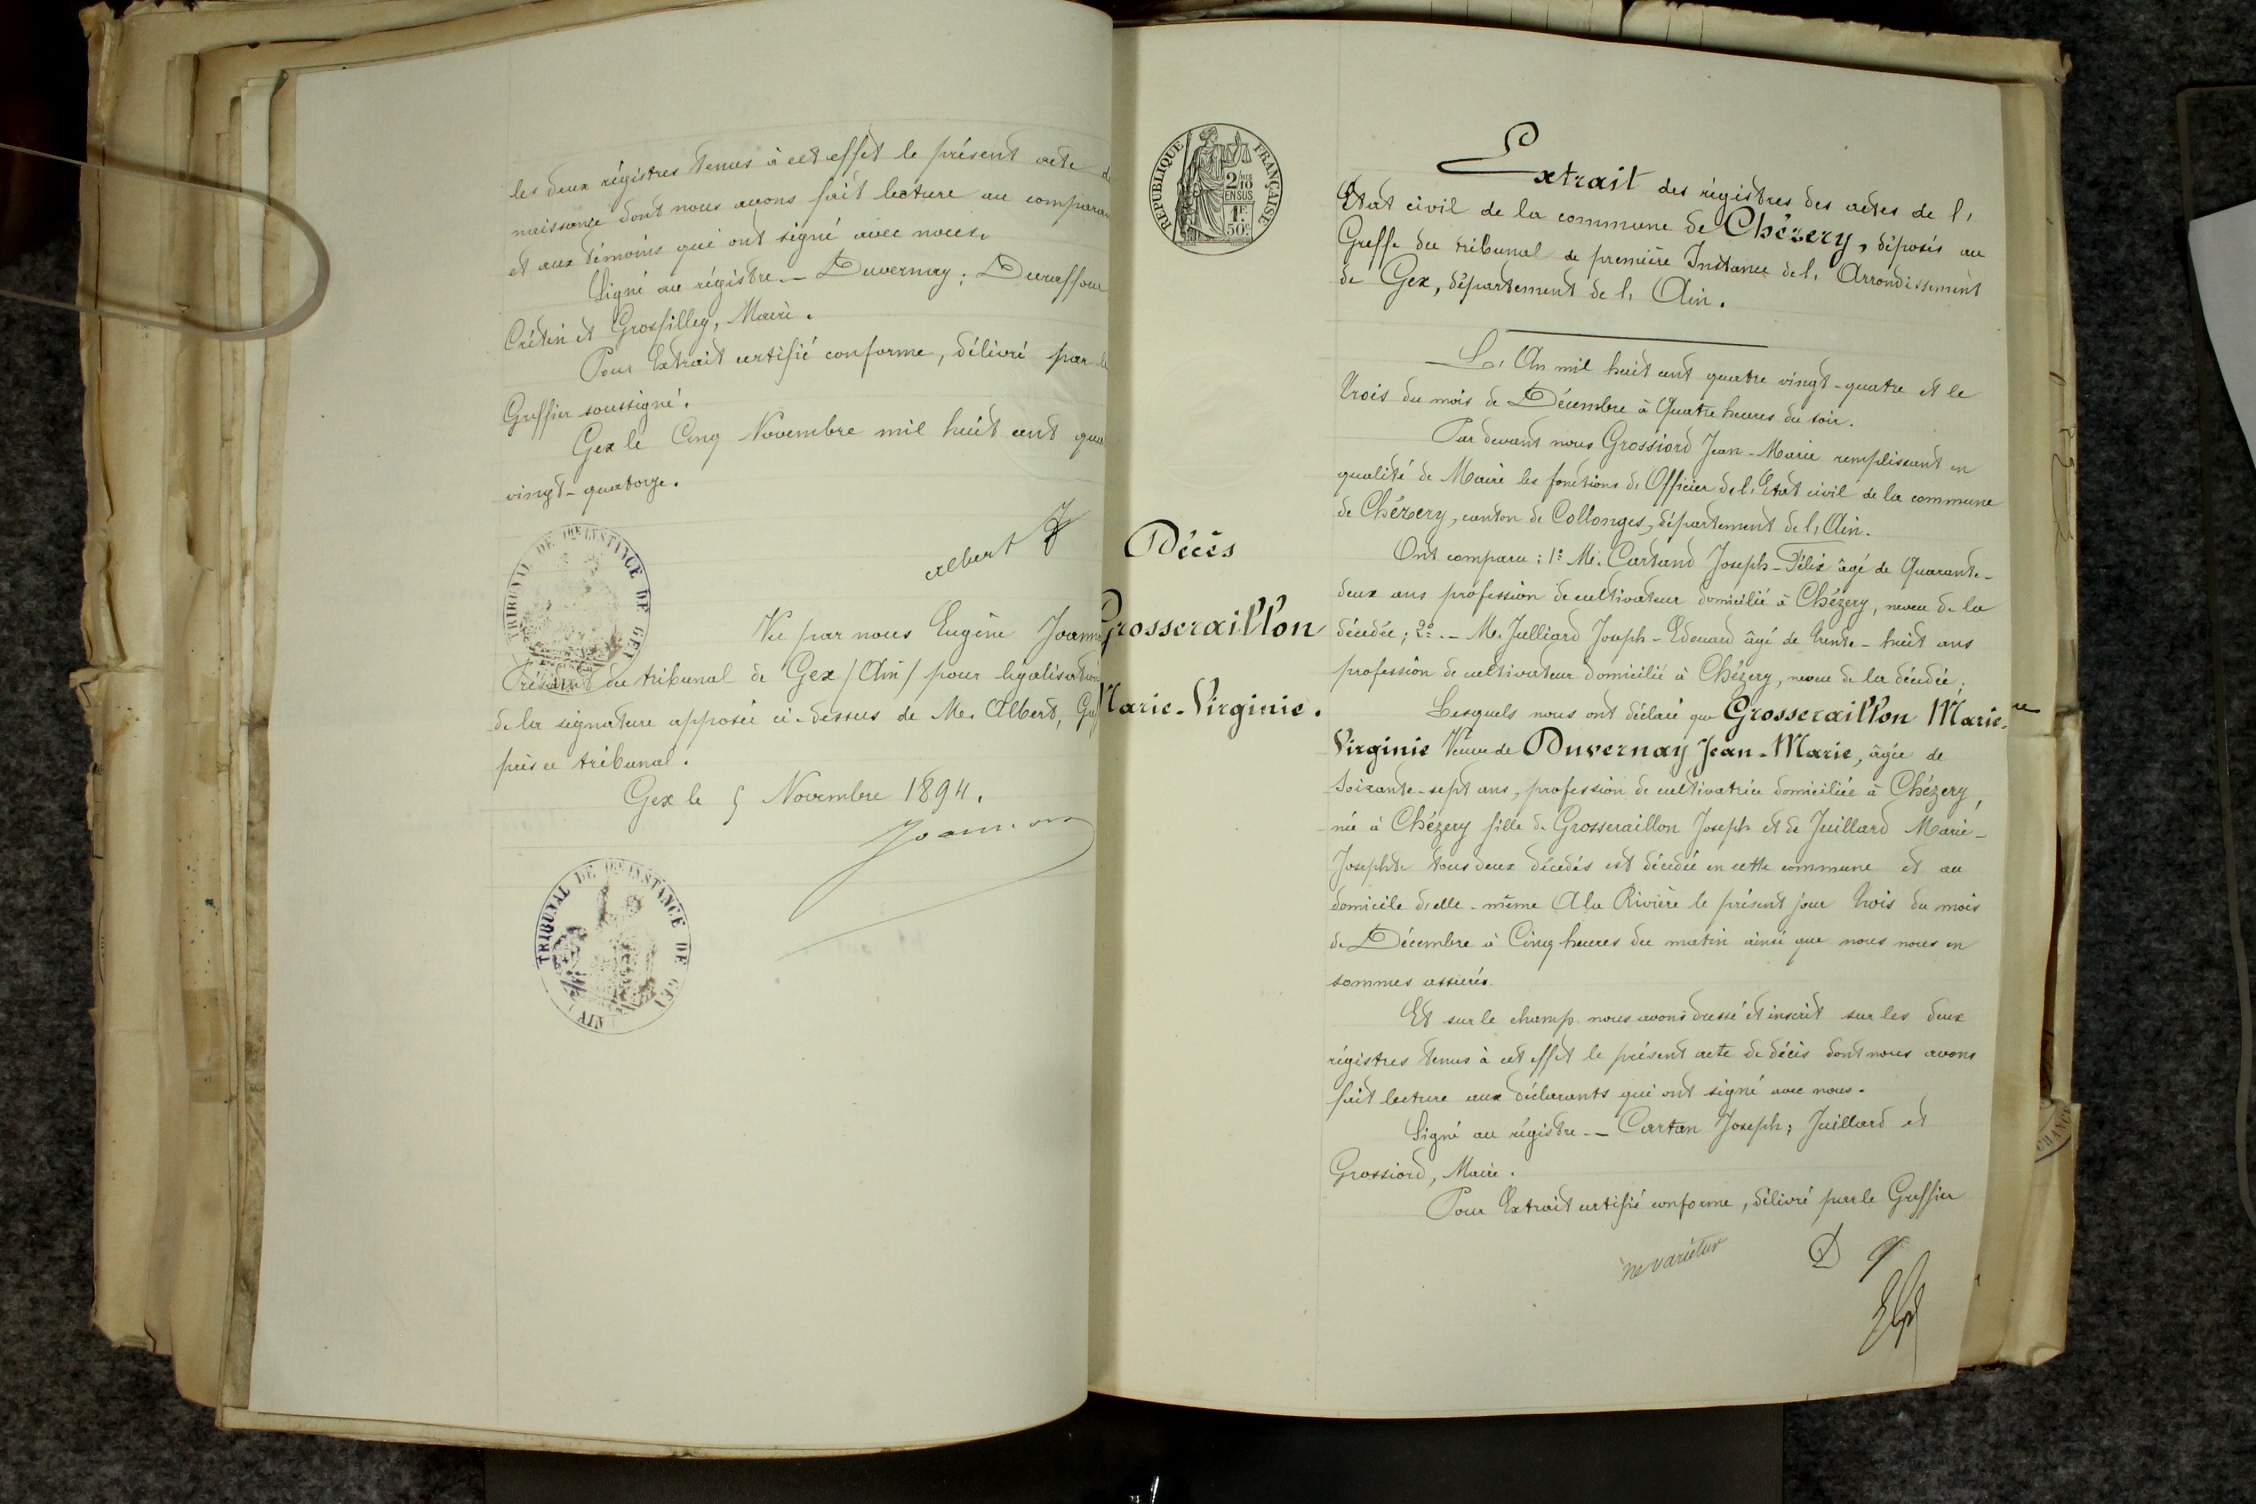 les deux régistres tenus à cet effet le présent acte de
naissance dont nous avons fait lecture au comparan
et aux témoins qui ont signé avec nous.
Signé au régistre. – Duvernay ; Duraffour
Crétin et Grosfilley, Maire.
Pour Extrait certifié conforme, délivré par le
Greffier soussigné.
Gex le Cinq Novembre mil huit cent qua
vingt-quatorze.
Albert
TRIBUNAL DE 1RE INSTANCE DE GEX
Vu par nous Eugène Joann
Président du tribunal de Gex /Ain/ pour légalisation
de la signature apposée ci-dessus de Me. Albert, Gref
près ce tribunal.
Gex le 5 Novembre 1894.
TRIBUNAL DE 1RE INSTANCE DE GEX
(AIN)
RÉPUBLIQUE FRANÇAISE
2/10
EN SUS
1F
50c
Décès
Grosseraillon
Marie-Virginie.
Extrait des régistres des actes de l'
Etat civil de la commune de Chézery, déposés au
Greffe du tribunal de première Instance de l'Arrondissement
de Gex, département de l'Ain.
L'An mil huit cent quatre vingt-quatre et le
trois du mois de Décembre à Quatre heures du soir.
Par devant nous Grossiord Jean-Marie remplissant en
qualité de Maire les fonctions d'Officier de l'Etat civil de la commune
de Chézery, canton de Collonges, département de l'Ain.
Ont comparu : 1° Me. Cartand Joseph-Félix âgé de Quarante-
deux ans profession de cultivateur domicilié à Chézery, neveu de la
décédée ; 2°. – Me. Julliard Joseph-Edouard âgé de trente-huit ans
profession de cultivateur domicilié à Chézery, neveu de la décédée ;
Lesquels nous ont déclaré que Grosseraillon Marie-
Virginie Veuve de Duvernay Jean-Marie, âgée de
soixante-sept ans, profession de cultivatrice domiciliée à Chézery,
née à Chézery fille de Grosseraillon Joseph et de Juillard Marie-
Josephte tous deux décédés est décédée en cette commune et au
domicile d'elle-même A la Rivière le présent jour trois du mois
de Décembre à Cinq heures du matin ainsi que nous nous en
sommes assurés.
Et sur le champ nous avons dressé et inscrit sur les deux
régistres tenus à cet effet le présent acte de décès dont nous avons
fait lecture aux déclarants qui ont signé avec nous.
Signé au régistre. – Cartan Joseph ; Juillard et
Grossiord, Maire.
Pour Extrait certifié conforme, délivré par le Greffier
ne varietur